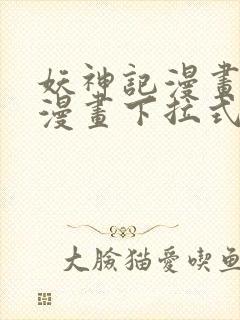 妖神記漫畫
漫畫下拉式
大臉猫愛喫鱼